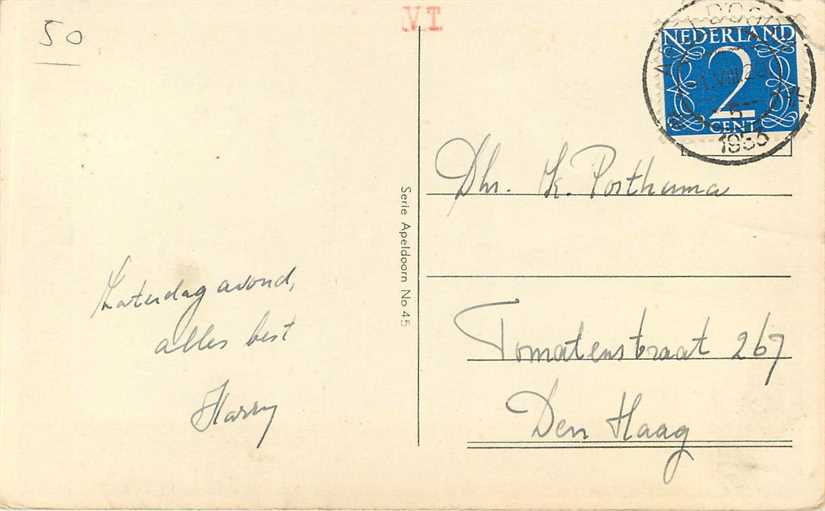 50
VT
NEDERLAND
2
CENT
1953
Serie Apeldoorn No 45
Zaterdagavond,
alles best
Harry
Dhr. K. Posthuma
Tomatenstraat 267
Den Haag